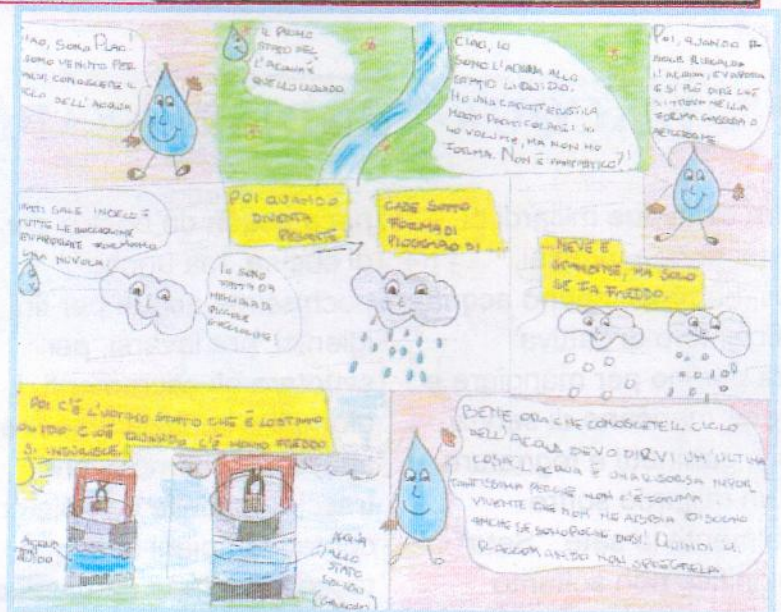 CIAO, SONO PLAO!
SONO VENUTO PER
CONOSCERE IL
CICLO DELL'ACQUA
IL PRIMO
STATO DEL
L'ACQUA È
QUELLO LIQUIDO.
CIAO, IO
SONO L'ACQUA ALLO
STATO LIQUIDO.
HO UNA CARATTERISTICA
MOLTO PARTICOLARE: IO
HO VOLUME, MA NON HO
FORMA. NON È FANTASTICO?!
POI, QUANDO IL
SOLE RISCALDA
L'ACQUA, EVAPORA
E SI PUÒ DIRE CHE
SI TROVA NELLA
FORMA GASSOSA O
AERIFORME
SALE IN CIELO E
TUTTE LE GOCCIOLINE
EVAPORATE FORMANO
UNA NUVOLA.
IO SONO
FATTA DA
MIGLIAIA DI
PICCOLE
GOCCIOLINE!
POI QUANDO
DIVENTA
PESANTE
CADE SOTTO
FORMA DI
PIOGGIA O DI ....
NEVE E
GRANDINE, MA SOLO
SE FA FREDDO.
POI C'È L'ULTIMO STATO CHE È LO STATO
SOLIDO CIOÈ QUANDO C'È MOLTO FREDDO
SI INDURISCE.
ACQUA
ACQUA
ALLO
STATO
SOLIDO
(GHIACCIO)
BENE, ORA CHE CONOSCETE IL CICLO
DELL'ACQUA DEVO DIRVI UN'ULTIMA
COSA. L'ACQUA È UNA RISORSA IMPOR
TANTISSIMA PERCHÉ NON C'È FORMA
VIVENTE CHE NON NE ABBIA BISOGNO
ANCHE SE SONO POCHE DOSI! QUINDI VI
RACCOMANDO NON SPRECATELA